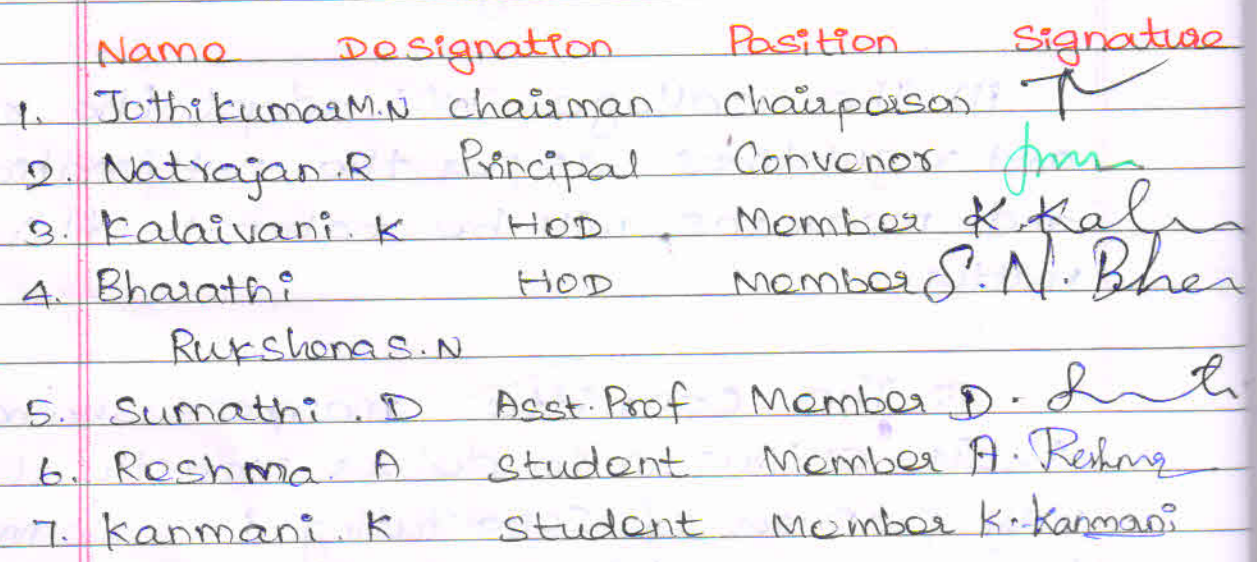 Name Designation Position Signature
1. Jothikumar M.N chairman chairperson
2. Natrajan.R Principal Convenor
3. Kalaivani.K HOD Member K.Kal
4. Bharathi HOD Member S.N.Bher
Rukshona S.N
5. Sumathi.D Asst.Prof Member D.
6. Reshma.A Student Member A.Reshma
7. Kanmani.K Student Member K.Kanmani